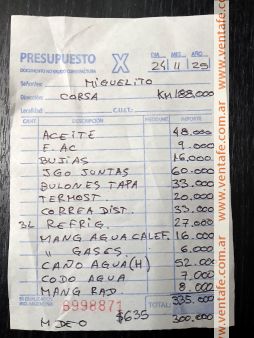 PRESUPUESTO X DIA MES AÑO
DOCUMENTO NO VALIDO COMO FACTURA 24 11 25
Señor/es: MIGUELITO
Dirección: CORSA KM 188.000
Localidad: C.U.I.T.:
CANT. DESCRIPCION PRECIO UNIT. IMPORTE
ACEITE 48.000
F. AC 9.000
BUJIAS 16.000
JGO JUNTAS 60.000
BULONES TAPA 33.000
TERMOST. 20.000
CORREA DIST. 33.000
3L REFRIG. 27.000
MANG AGUA CALEF. 16.000
" GASES. 6.000
CAÑO AGUA (H) 52.000
CODO AGUA 7.000
MANG RAD. 8.000
TOTAL: 335.000
6998871
M DE O $635 300.000
www.ventafe.com.ar
www.ventafe.com.ar
www.ventafe.com.ar